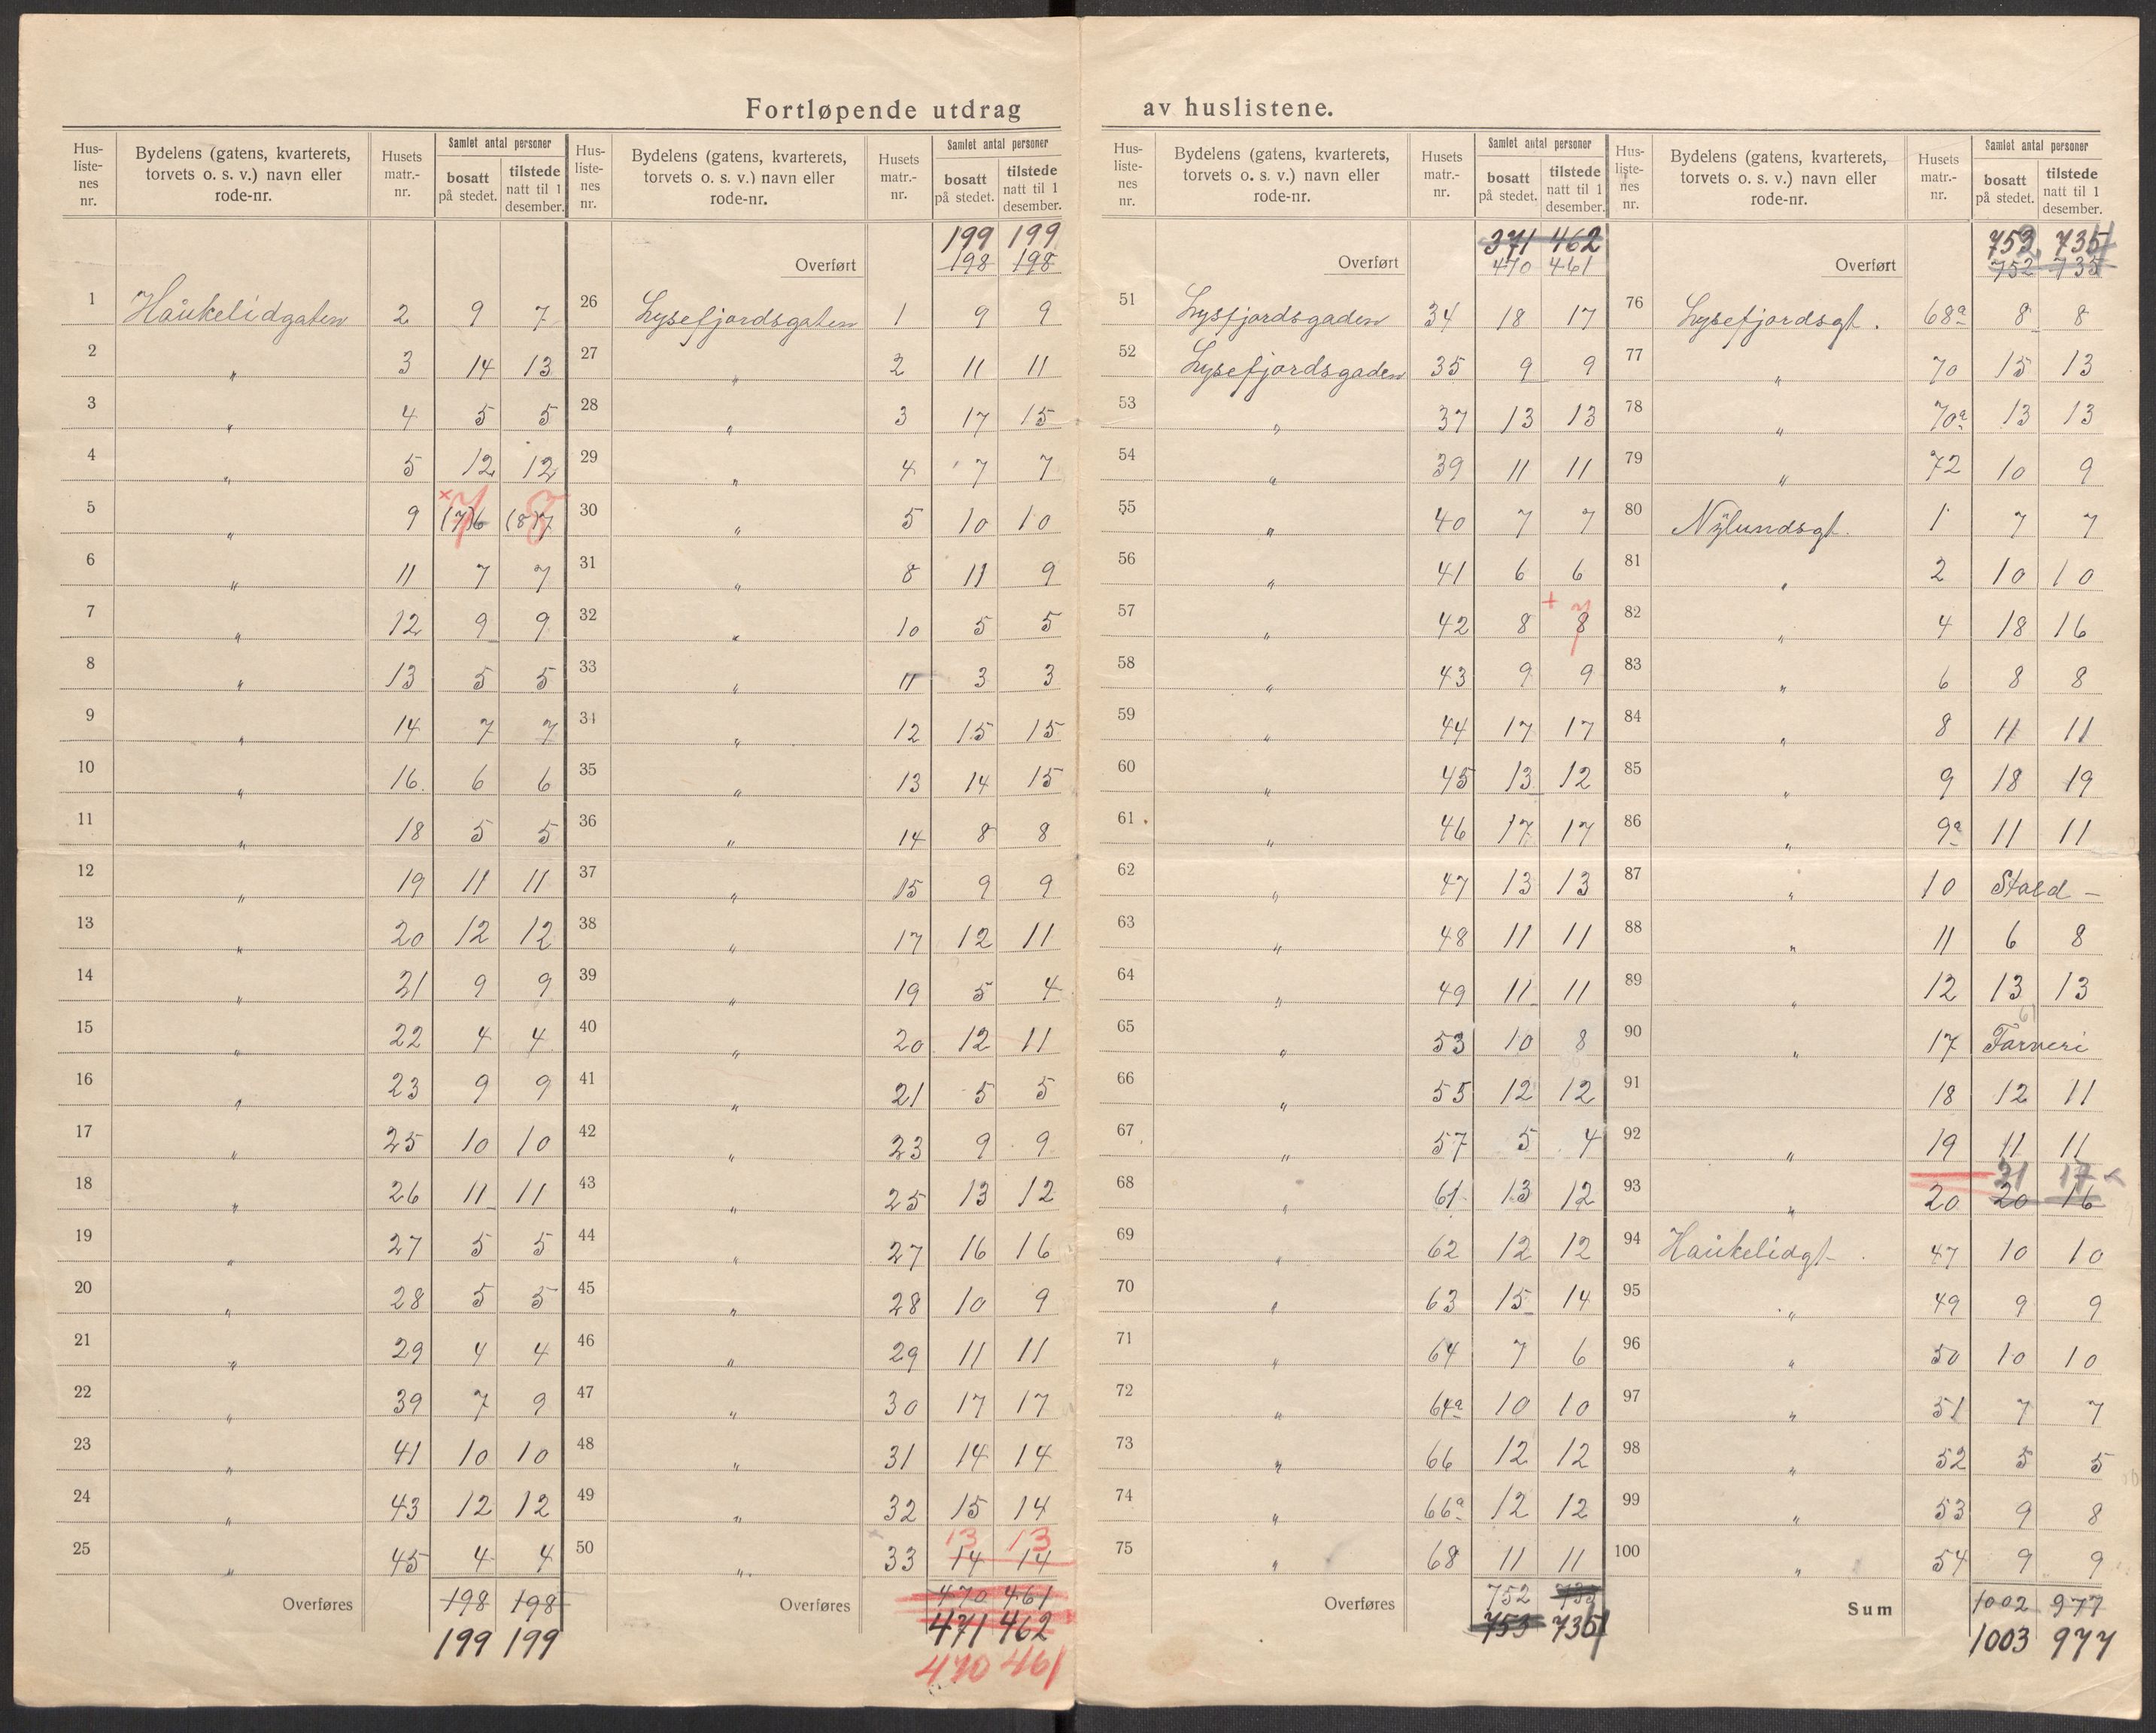 Fortløpende utdrag av huslistene.
Hus-liste-nes nr. | Bydelens (gatens, kvarterets, torvets o. s. v.) navn eller rode-nr. | Husets matr.-nr. | Samlet antal personer bosatt på stedet. | tilstede natt til 1 desember.
1 Haukelidgaten 2 9 7
2 " 3 14 13
3 " 4 5 5
4 " 5 12 12
5 " 9 (7)6 7 (8)7 8
6 " 11 7 7
7 " 12 9 9
8 " 13 5 5
9 " 14 7 7
10 " 16 6 6
11 " 18 5 5
12 " 19 11 11
13 " 20 12 12
14 " 21 9 9
15 " 22 4 4
16 " 23 9 9
17 " 25 10 10
18 " 26 11 11
19 " 27 5 5
20 " 28 5 5
21 " 29 4 4
22 " 39 7 9
23 " 41 10 10
24 " 43 12 12
25 " 45 4 4
Overføres 198 198
199 199
Hus-liste-nes nr. | Bydelens (gatens, kvarterets, torvets o. s. v.) navn eller rode-nr. | Husets matr.-nr. | Samlet antal personer bosatt på stedet. | tilstede natt til 1 desember.
199 199
Overført 198 198
26 Lysefjordsgaten 1 9 9
27 " 2 11 11
28 " 3 17 15
29 " 4 7 7
30 " 5 10 10
31 " 8 11 9
32 " 10 5 5
33 " 11 3 3
34 " 12 15 15
35 " 13 14 15
36 " 14 8 8
37 " 15 9 9
38 " 17 12 11
39 " 19 5 4
40 " 20 12 11
41 " 21 5 5
42 " 23 9 9
43 " 25 13 12
44 " 27 16 16
45 " 28 10 9
46 " 29 11 11
47 " 30 17 17
48 " 31 14 14
49 " 32 15 14
13 13
50 " 33 14 14
Overføres 470 461
471 462
470 461
Hus-liste-nes nr. | Bydelens (gatens, kvarterets, torvets o. s. v.) navn eller rode-nr. | Husets matr.-nr. | Samlet antal personer bosatt på stedet. | tilstede natt til 1 desember.
371 462
Overført 470 461
51 Lysfjordsgaden 34 18 17
52 Lysefjordsgaden 35 9 9
53 " 37 13 13
54 " 39 11 11
55 " 40 7 7
56 " 41 6 6
57 " 42 8 8 7
58 " 43 9 9
59 " 44 17 17
60 " 45 13 12
61 " 46 17 17
62 " 47 13 13
63 " 48 11 11
64 " 49 11 11
65 " 53 10 8
66 " 55 12 12
67 " 57 5 4
68 " 61 13 12
69 " 62 12 12
70 " 63 15 14
71 " 64 7 6
72 " 64a 10 10
73 " 66 12 12
74 " 66a 12 12
75 " 68 11 11
Overføres 752
753 735
Hus-liste-nes nr. | Bydelens (gatens, kvarterets, torvets o. s. v.) navn eller rode-nr. | Husets matr.-nr. | Samlet antal personer bosatt på stedet. | tilstede natt til 1 desember.
753 735
Overført 752 735
76 Lysefjordsgt. 68a 8 8
77 " 70 15 13
78 " 70a 13 13
79 " 72 10 9
80 Nylundsgt. 1 7 7
81 " 2 10 10
82 " 4 18 16
83 " 6 8 8
84 " 8 11 11
85 " 9 18 19
86 " 9a 11 11
87 " 10 Stald –
88 " 11 6 8
89 " 12 13 13
90 " 17 Farveri
91 18 12 11
92 " 19 11 11
21 17
93 " 20 20 16
94 Haukelidgt. 47 10 10
95 " 49 9 9
96 " 50 10 10
97 " 51 7 7
98 " 52 5 5
99 " 53 9 8
100 " 54 9 9
Sum 1002 977
1003 977